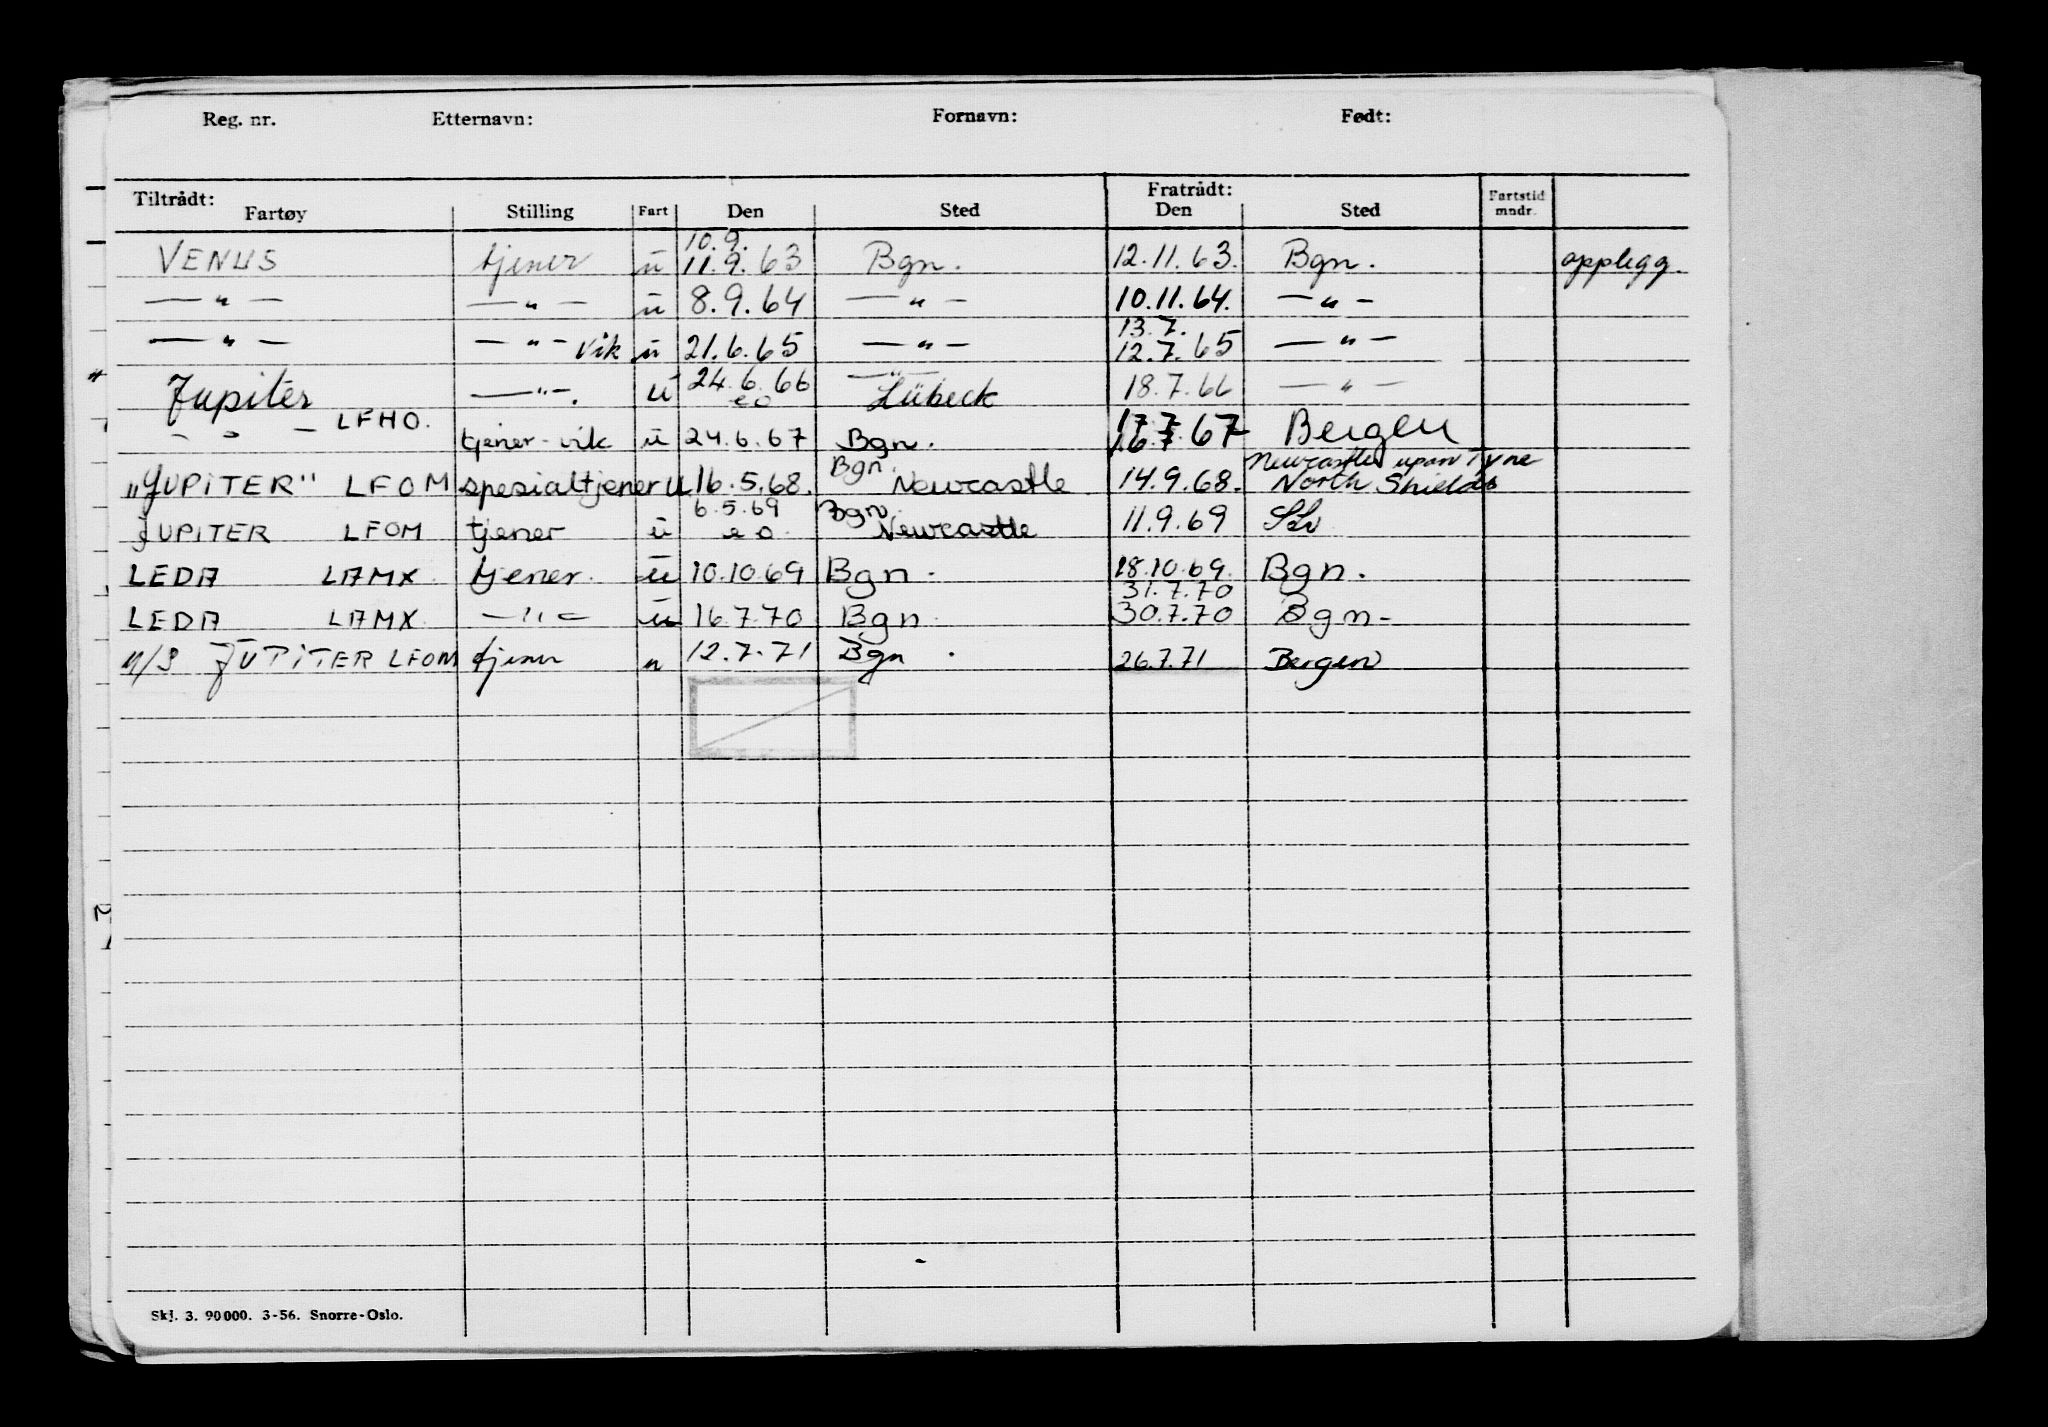 Reg. nr. Etternavn: Fornavn: Født:
Tiltrådt: Fratrådt:
Fartøy Stilling Fart Den Sted Den Sted Fartstid mndr.
10.9.
VENUS tjener u 11.9.63 Bgn. 12.11.63. Bgn. opplegg.
—"— —"— u 8.9.64 —"— 10.11.64. —"—
13.7.
—"— —"— Vik u 21.6.65 —"— 12.7.65 —"—
24.6.66 —"—
Jupiter —"—. u eo Lübeck 18.7.66 —"—
LFHO. 17.7.
— " — tjener-vik u 24.6.67 Bgn. 16.7.67 Bergen
Bgn. Newcastle upon Tyne
"JUPITER" LFOM spesialtjener u 16.5.68. Newcastle 14.9.68. North Shields
6.5.69 Bgn.
JUPITER LFOM tjener u eo. Newcastle 11.9.69
LEDA LAMX. tjener. u 10.10.69 Bgn. 18.10.69. Bgn.
31.7.70
LEDA LAMX. —"— u 16.7.70 Bgn. 30.7.70 Bgn-
M/S JUPITER LFOM tjener u 12.7.71 Bgn. 26.7.71 Bergen
Skj. 3. 90000. 3-56. Snorre-Oslo.